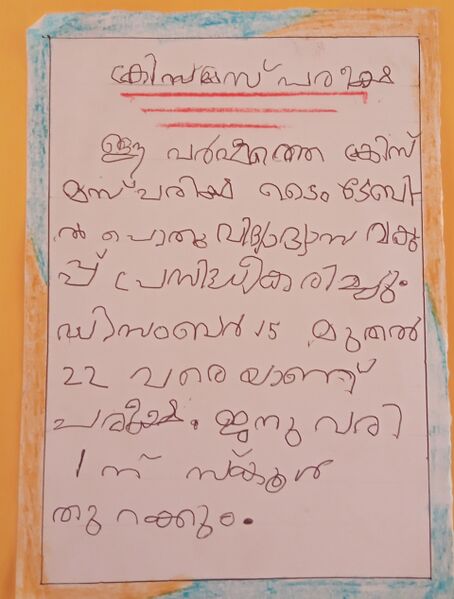 ക്രിസ്മസ് പരീക്ഷ
ഈ വർഷത്തെ ക്രിസ്
മസ് പരീക്ഷ ടൈം ടേബി-
ൾ പൊതു വിദ്യാഭ്യാസ വകു
പ്പ് പ്രസിദ്ധീകരിച്ചു.
ഡിസംബർ 15 മുതൽ
22 വരെയാണ്
പരീക്ഷ. ജനുവരി
1ന് സ്കൂൾ
തുറക്കും.